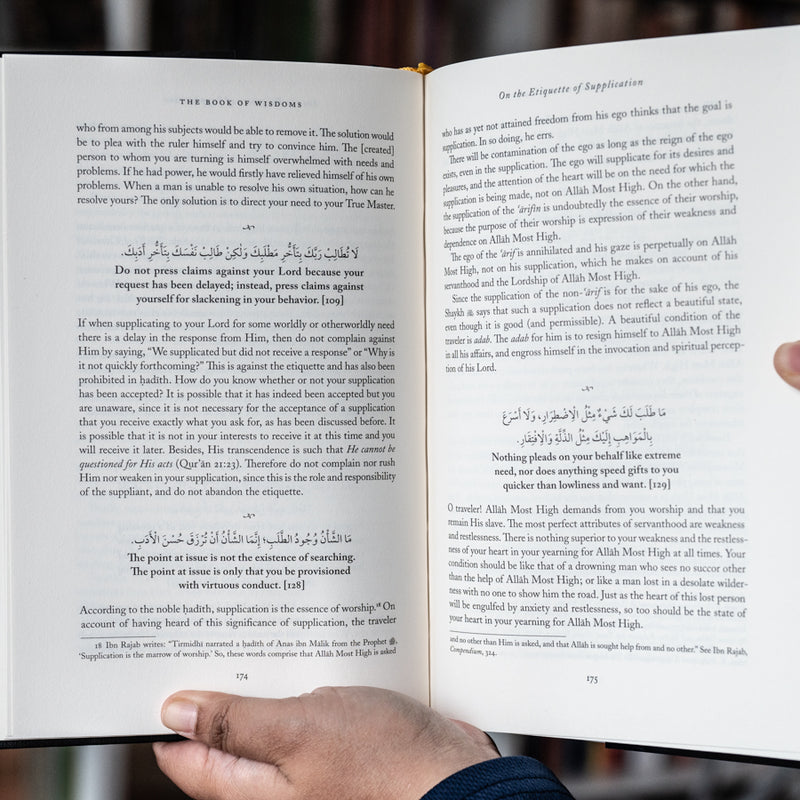 THE BOOK OF WISDOMS
who from among his subjects would be able to remove it. The solution would
be to plea with the ruler himself and try to convince him. The [created]
person to whom you are turning is himself overwhelmed with needs and
problems. If he had power, he would firstly have relieved himself of his own
problems. When a man is unable to resolve his own situation, how can he
resolve yours? The only solution is to direct your need to your True Master.
لَا تُطَالِبْ رَبَّكَ بِتَأَخُّرِ مَطْلَبِكَ وَلَكِنْ طَالِبْ نَفْسَكَ بِتَأَخُّرِ أَدَبِكَ.
Do not press claims against your Lord because your
request has been delayed; instead, press claims against
yourself for slackening in your behavior. [109]
If when supplicating to your Lord for some worldly or otherworldly need
there is a delay in the response from Him, then do not complain against
Him by saying, “We supplicated but did not receive a response” or “Why is
it not quickly forthcoming?” This is against the etiquette and has also been
prohibited in ḥadīth. How do you know whether or not your supplication
has been accepted? It is possible that it has indeed been accepted but you
are unaware, since it is not necessary for the acceptance of a supplication
that you receive exactly what you ask for, as has been discussed before. It
is possible that it is not in your interests to receive it at this time and you
will receive it later. Besides, His transcendence is such that He cannot be
questioned for His acts (Qur’ān 21:23). Therefore do not complain nor rush
Him nor weaken in your supplication, since this is the role and responsibility
of the suppliant, and do not abandon the etiquette.
مَا الشَّأْنُ وُجُودُ الطَّلَبِ؛ إِنَّمَا الشَّأْنُ أَنْ تُرْزَقَ حُسْنَ الْأَدَبِ.
The point at issue is not the existence of searching.
The point at issue is only that you be provisioned
with virtuous conduct. [128]
According to the noble ḥadīth, supplication is the essence of worship.¹⁸ On
account of having heard of this significance of supplication, the traveler
18 Ibn Rajab writes: “Tirmidhi narrated a ḥadīth of Anas ibn Mālik from the Prophet ﷺ,
‘Supplication is the marrow of worship.’ So, these words comprise that Allāh Most High is asked
174
On the Etiquette of Supplication
who has as yet not attained freedom from his ego thinks that the goal is
supplication. In so doing, he errs.
There will be contamination of the ego as long as the reign of the ego
exists, even in the supplication. The ego will supplicate for its desires and
pleasures, and the attention of the heart will be on the need for which the
supplication is being made, not on Allāh Most High. On the other hand,
the supplication of the ʿārifīn is undoubtedly the essence of their worship,
because the purpose of their worship is expression of their weakness and
dependence on Allāh Most High.
The ego of the ʿārif is annihilated and his gaze is perpetually on Allāh
Most High, not on his supplication, which he makes on account of his
servanthood and the Lordship of Allāh Most High.
Since the supplication of the non-ʿārif is for the sake of his ego, the
Shaykh says that such a supplication does not reflect a beautiful state,
even though it is good (and permissible). A beautiful condition of the
traveler is adab. The adab for him is to resign himself to Allāh Most High
in all his affairs, and engross himself in the invocation and spiritual percep-
tion of his Lord.
مَا طَلَبَ لَكَ شَيْءٌ مِثْلُ الْاِضْطِرَارِ، وَلَا أَسْرَعَ
بِالْمَوَاهِبِ إِلَيْكَ مِثْلُ الذِّلَّةِ وَالْاِفْتِقَارِ.
Nothing pleads on your behalf like extreme
need, nor does anything speed gifts to you
quicker than lowliness and want. [129]
O traveler! Allāh Most High demands from you worship and that you
remain His slave. The most perfect attributes of servanthood are weakness
and restlessness. There is nothing superior to your weakness and the restless-
ness of your heart in your yearning for Allāh Most High at all times. Your
condition should be like that of a drowning man who sees no succor other
than the help of Allāh Most High; or like a man lost in a desolate wilder-
ness with no one to show him the road. Just as the heart of this lost person
will be engulfed by anxiety and restlessness, so too should be the state of
your heart in your yearning for Allāh Most High.
and no other than Him is asked, and that Allāh is sought help from and no other.” See Ibn Rajab,
Compendium, 314.
175